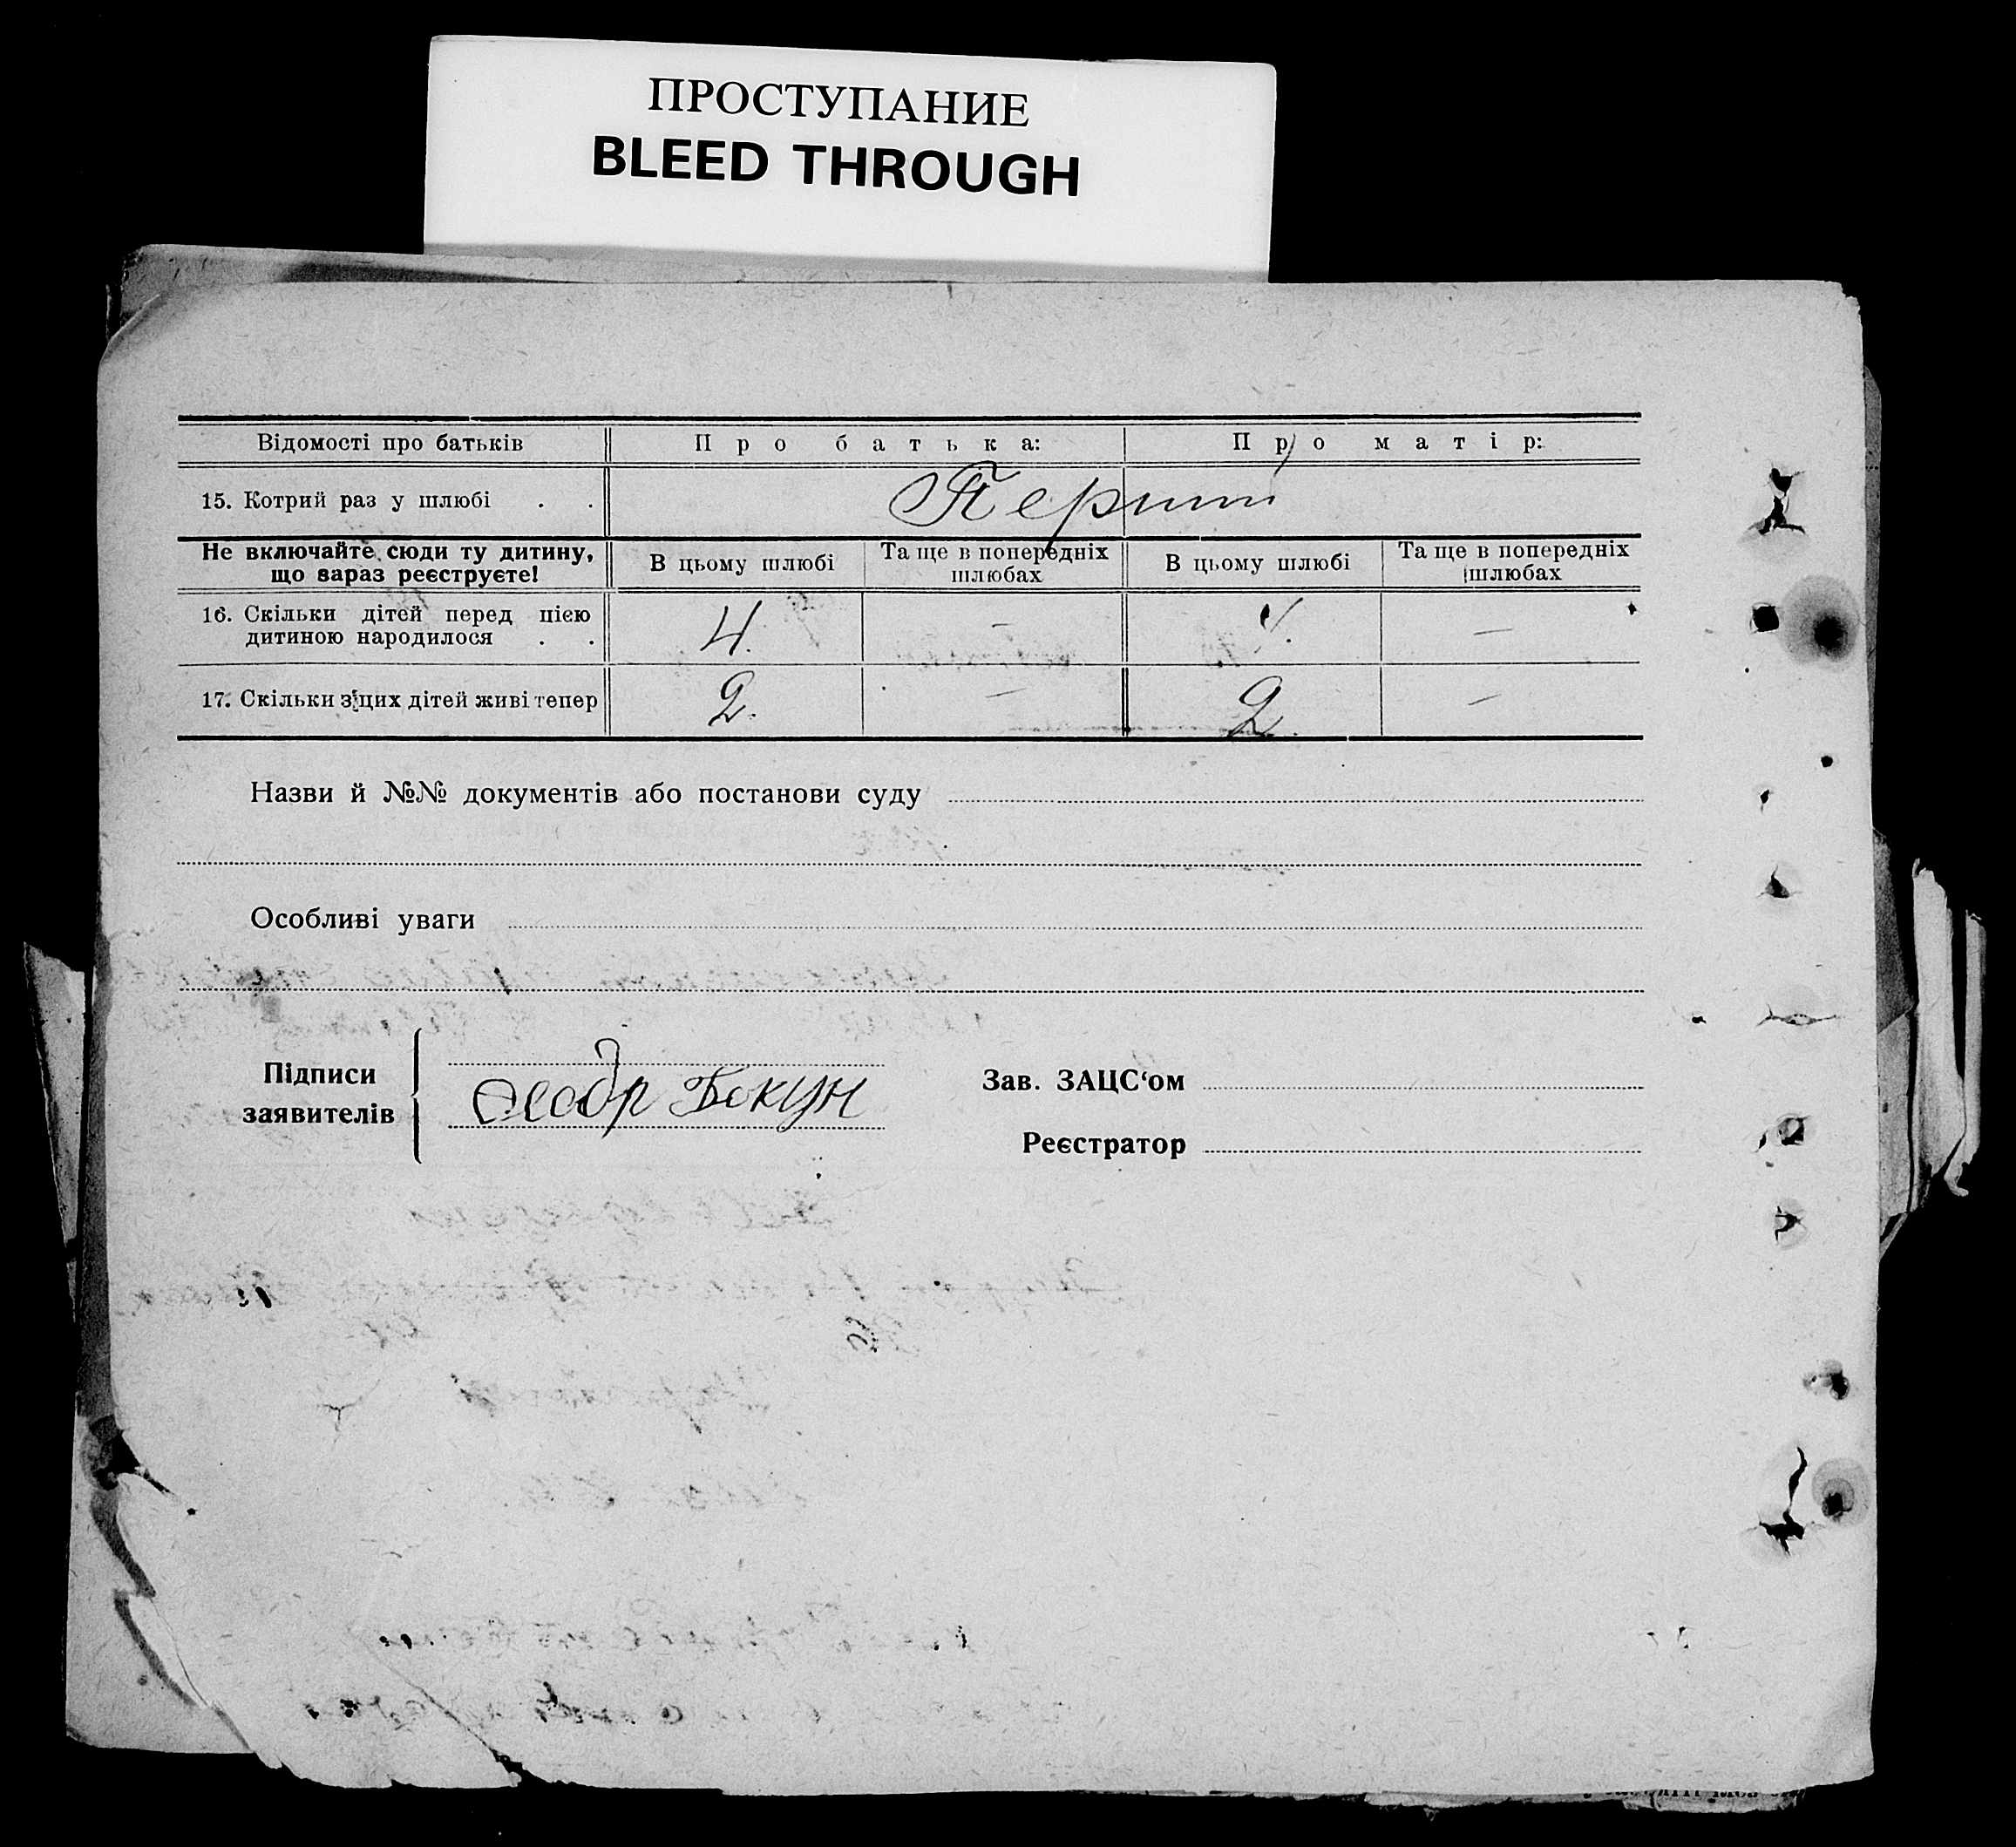 ПРОСТУПАНИЕ
BLEED THROUGH
Відомості про батьків Про батька: Про матір:
15. Котрий раз у шлюбі . . Перший
Не включайте сюди ту дитину, що зараз реєструєте! В цьому шлюбі Та ще в попередніх шлюбах В цьому шлюбі Та ще в попередніх шлюбах
16. Скільки дітей перед цією
дитиною народилося . . 4. — 4. —
17. Скільки з цих дітей живі тепер 2. — 2. —
Назви й №№ документів або постанови суду
Особливі уваги
Підписи
заявителів
Бокун
Зав. ЗАЦС‘ом
Реєстратор